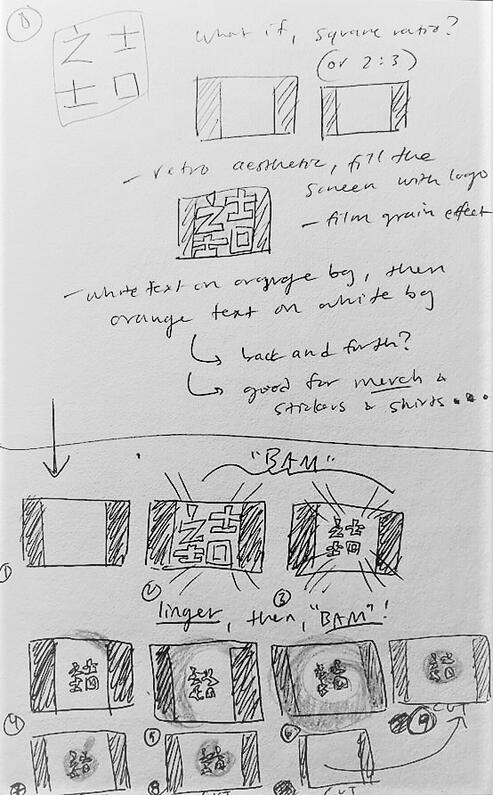 What if, square ratio?
(or 2:3)
- retro aesthetic, fill the
screen with logo
- film grain effect
- white text on orange bg, then
orange text on white bg
back and forth?
good for merch &
stickers & shirts...
"BAM"
1
2
3
linger, then, "BAM"!
4
5
6
9
CUT
8
CUT
CUT